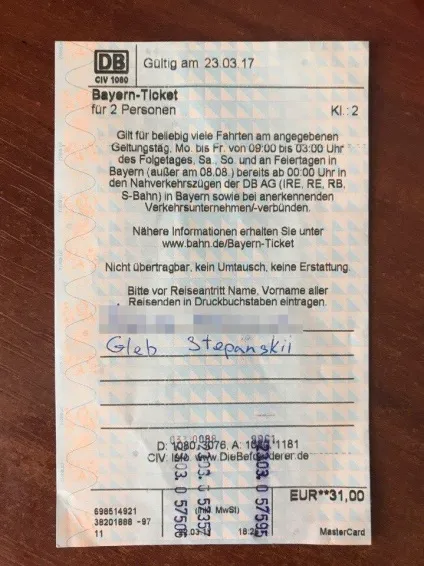 DB
CIV 1080
Gültig am 23.03.17
Bayern-Ticket
für 2 Personen Kl.: 2
Gilt für beliebig viele Fahrten am angegebenen
Geltungstag, Mo. bis Fr. von 09:00 bis 03:00 Uhr
des Folgetages, Sa., So. und an Feiertagen in
Bayern (außer am 08.08.) bereits ab 00:00 Uhr in
den Nahverkehrszügen der DB AG (IRE, RE, RB,
S-Bahn) in Bayern sowie bei anerkennenden
Verkehrsunternehmen/-verbünden.
Nähere Informationen erhalten Sie unter
www.bahn.de/Bayern-Ticket
Nicht übertragbar, kein Umtausch, keine Erstattung.
Bitte vor Reiseantritt Name, Vorname aller
Reisenden in Druckbuchstaben eintragen.
Gleb Stepanskii
D: 1080, 3076, A: 1181
CIV: www.DieBefoerderer.de
2303. 0 57506
2303. 0 55357
2303. 0 57595
EUR**31,00
698514921 (inkl. MwSt)
38201888 -97
11 MasterCard